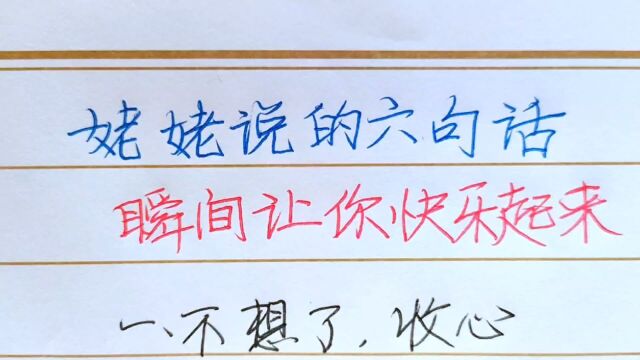 姥姥说的六句话
瞬间让你快乐起来
一、不想了,收心